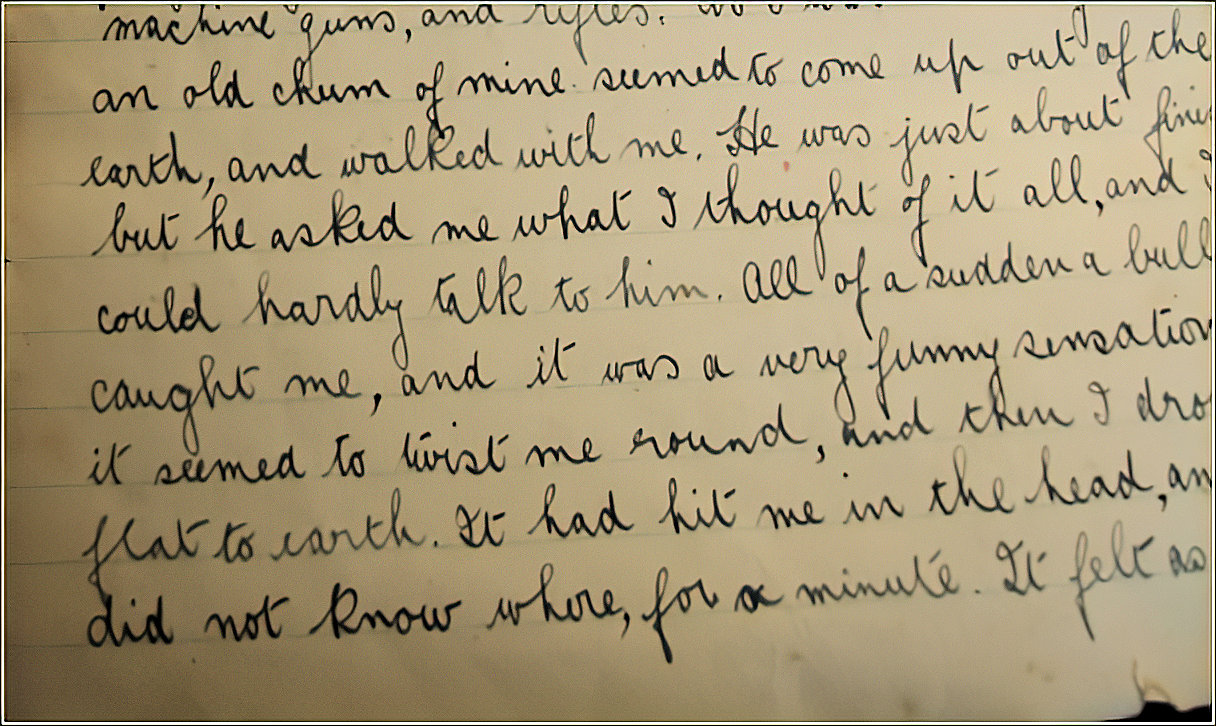 machine guns, and rifles.
an old chum of mine seemed to come up out of the
earth, and walked with me. He was just about
but he asked me what I thought of it all, and
could hardly talk to him. All of a sudden a
caught me, and it was a very funny sensation
it seemed to twist me round, and then I
flat to earth. It had hit me in the head,
did not know where, for a minute. It felt as